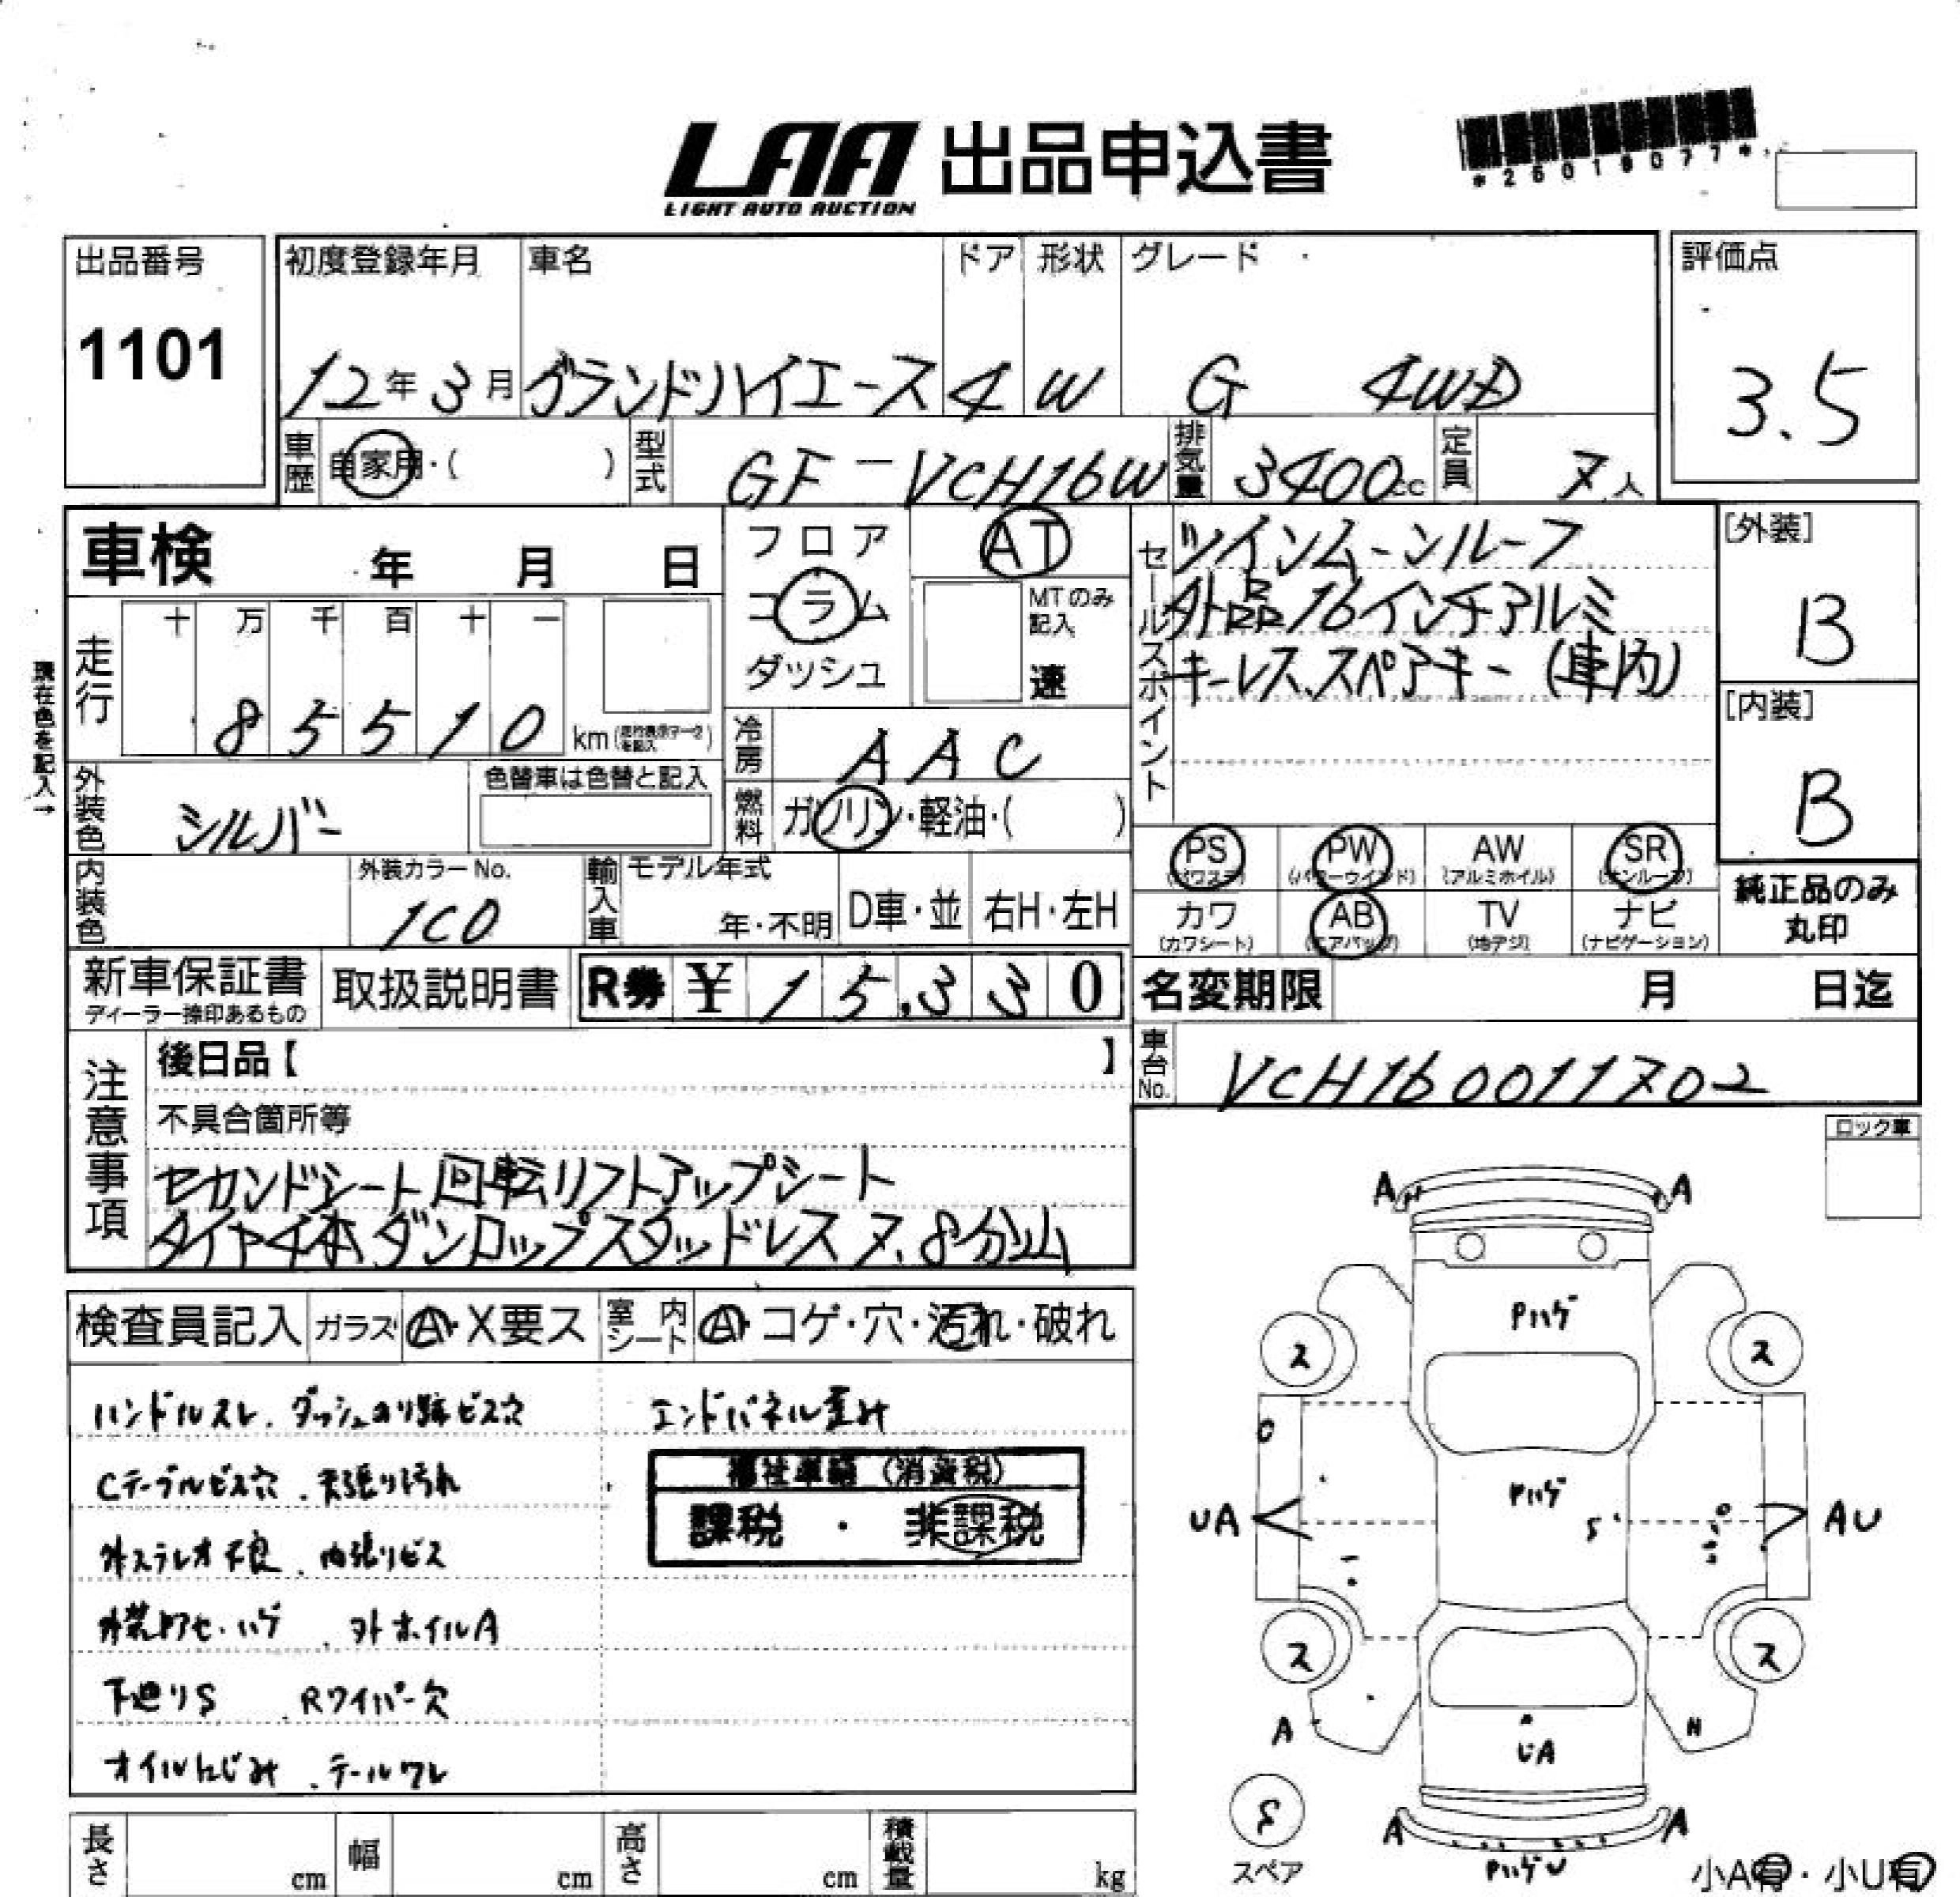 LAA 出品申込書
LIGHT AUTO AUCTION
*26019077*
出品番号
1101
初度登録年月 車名 ドア 形状 グレード
12年3月 グランドハイエース 4 W G 4WD
評価点
3.5
車歴 自家用・( ) 型式 GF-VCH16W 排気量 3400cc 定員 7人
車検 年 月 日
フロア
コラム
ダッシュ
AT
MTのみ
記入
速
セールスポイント
ツインムーンルーフ
外品16インチアルミ
キーレス、スペアキー(車内)
[外装]
B
[内装]
B
現在色を記入→
走行
十 万 千 百 十 一
8 5 5 1 0 km
冷房 AAC
外装色 シルバー
色替車は色替と記入
燃料 ガソリン・軽油・( )
PS (パワステ) PW (パワーウインド) AW (アルミホイル) SR (サンルーフ)
カワ (カワシート) AB (エアバッグ) TV (地デジ) ナビ (ナビゲーション)
純正品のみ
丸印
内装色
外装カラーNo.
1C0
輸入車 モデル年式
年・不明 D車・並 右H・左H
新車保証書
ディーラー捺印あるもの
取扱説明書
R券 ¥15,330
名変期限 月 日迄
車台No. VCH160011702
注意事項
後日品【 】
不具合箇所等
セカンドシート回転リフトアップシート
タイヤ4本ダンロップスタッドレス7、8分山
ロック車
検査員記入 ガラス A・X要ス 室内シート A・コゲ・穴・汚れ・破れ
ハンドルスレ、ダッシュのり跡ビス穴
エンドパネル歪み
Cテーブルビス穴、天張り汚れ
福祉車輌(消費税)
課税・非課税
外ステレオ不良、内張りビス
外装アセ・ハゲ、外ホイルA
下廻りS、Rワイパー欠
オイルにじみ、テールワレ
長さ cm 幅 cm 高さ cm 積載量 kg
A A
Pハゲ
ス ス
C
Pハゲ
UA S AU
ス ス
A
UA
S
スペア
A A
PハゲU
小A有・小U有